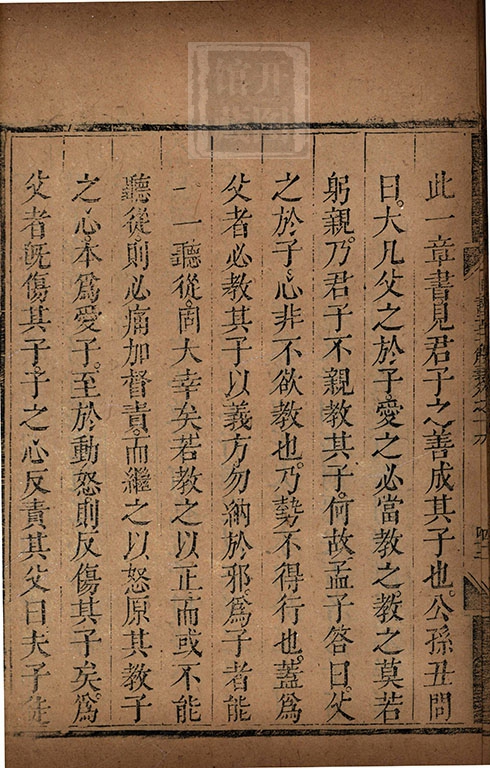 此一章書見君子之善成其子也公孫丑問
曰大凡父之於子愛之必當教之教之莫若
躬親乃君子不親教其子何故孟子答曰父
之於子心非不欲教也乃勢不得行也蓋爲
父者必教其子以義方勿納於邪爲子者能
一一聽從固大幸矣若教之以正而或不能
聽從則必痛加督責而繼之以怒原其教子
之心本爲愛子至於動怒則反傷其子矣爲
父者旣傷其子子之心反責其父曰夫子